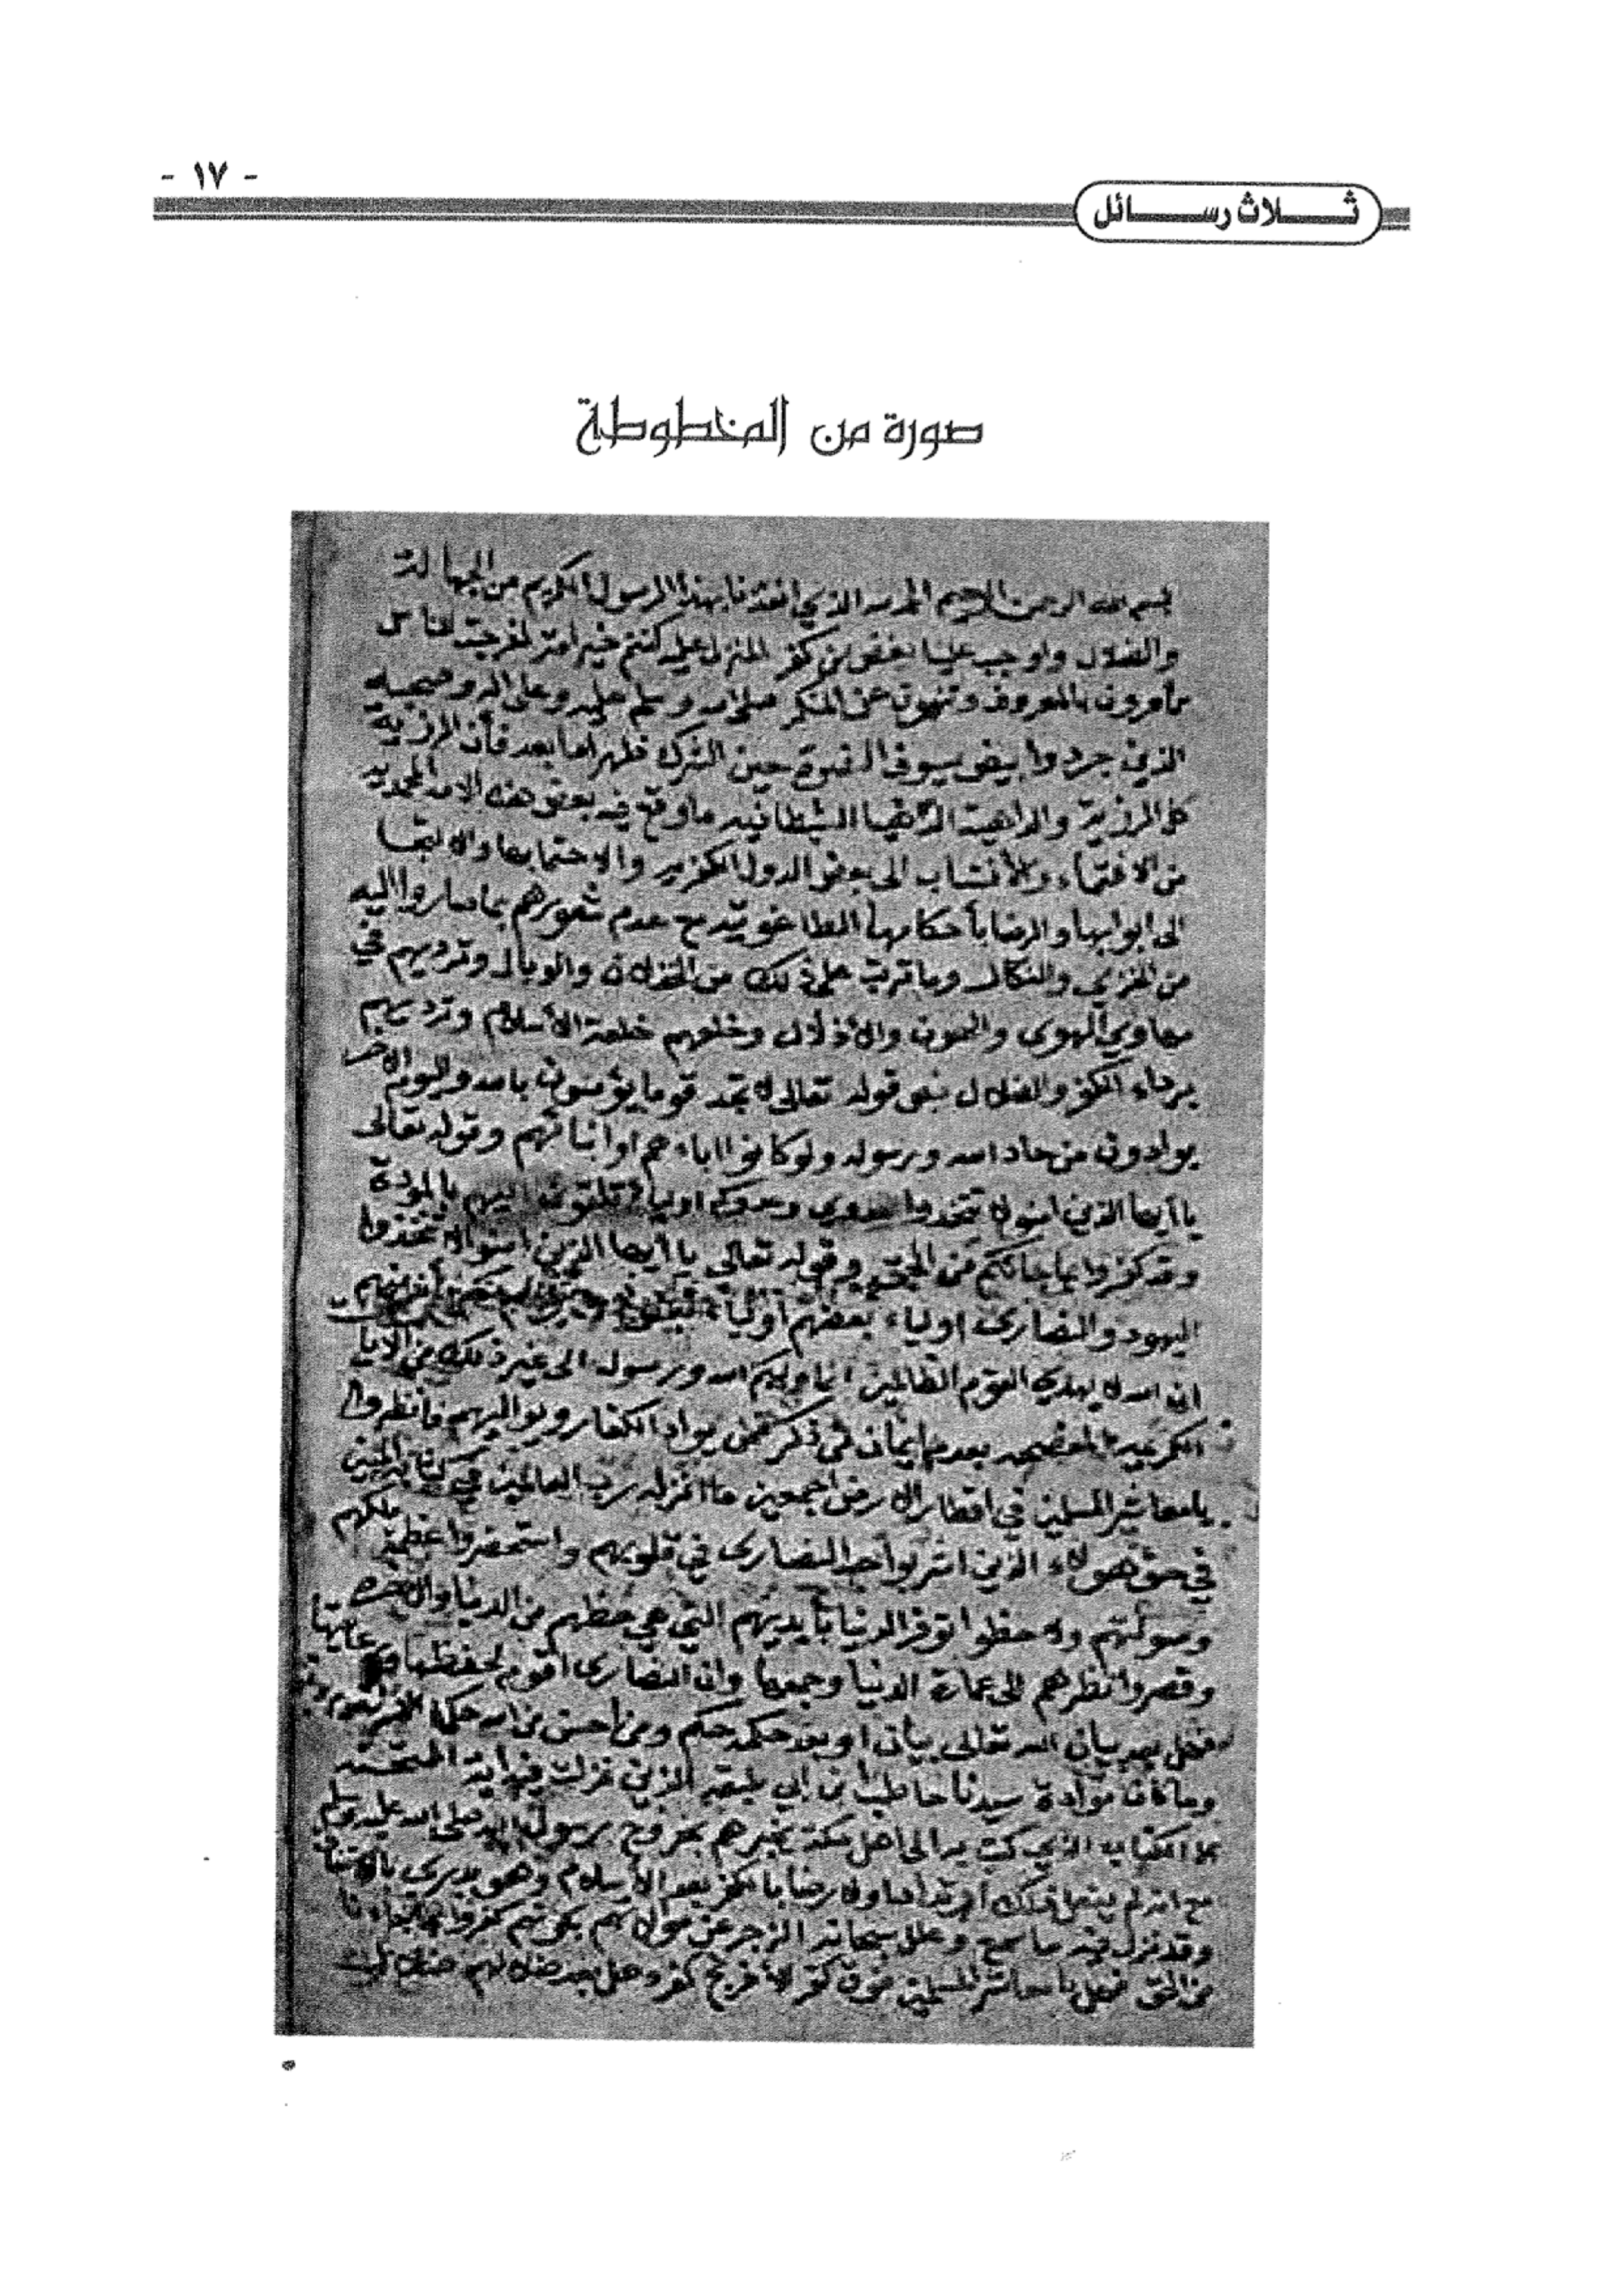 - ١٧ -
ثلاث رسائل
صورة من المخطوطة
بسم الله الرحمن الرحيم الحمد لله الذي انقذنا بهذا الرسول الكريم من الجهالة
والضلال واوجب علينا بغض من كفر المنزل عليه كنتم خير امة اخرجت للناس
تأمرون بالمعروف وتنهون عن المنكر صلى الله وسلم عليه وعلى اله وصحبه
الذين جردوا بيض سيوف حين الشرك ظهر اما بعد فأن الرزية
كل الرزية والداهية الشيطانيه ما وقع فيه بعض هذه الامة المحمديه
من الانتماء والأنتساب الى بعض الدول الكفريه والاحتما بها والالتجا
الى ابوابها والرضا بأحكامها الطاغوتيه مع عدم شعورهم بما صاروا اليه
من الخزي والنكال وما ترتب على ذلك من والوبال وترديهم في
مهاوي الهوى والهون والأذلال وخلعهم خلعة الأسلام وترديهم
برداء الكفر والضلال بنص قوله تعالى لا تجد قوما يؤمنون بالله واليوم الاخر
يوادون من حاد الله ورسوله ولو كانوا اباءهم او ابنائهم وقوله تعالى
يا أيها الذين امنوا لا تتخذوا عدوي وعدوكم اولياء تلقون اليهم بالمودة
وقد كفروا بما جائكم من الحق وقوله تعالى يا أيها الذين امنوا لا تتخذوا
اليهود والنصارى اولياء بعضهم أولياء
ان الله لا يهدي القوم الظالمين انما وليكم الله ورسوله الى غير ذلك من الايات
الكريمه بعدم ايمان يواد الكفار ويواليهم فانظروا
يا معاشر المسلمين في اقطار الارض أجمعين ما انزله رب العالمين في كتابه المبين
في حق هولاء الذين اشربوا حب النصارى في قلوبهم واستحضروا عظمة ملكهم
وصولتهم ولاحظوا توفر الدنيا بأيديهم التي هي حظهم من الدنيا والاخره
وقصروا نظرهم الى عمارة الدنيا وجمعها وان النصارى اقوم لحفظها
فهل بعد بيان الله تعالى بيان او بعد حكمه حكم ومن احسن من الله حكما
وما كان موادة سيدنا حاطب بن ابي بلتعه الذين نزلت فيه اية الممتحنه
الكتاب الذي كتب به الى اهل مكة يخبرهم بخروج رسول الله صلى الله عليه وسلم
مع انه لم يفعل ذلك ارتدادا ولا رضا بالكفر بعد الأسلام وهو بدرى
وقد نزل فيه ما سمع وعلل سبحانه الزجر عن موالاتهم بكونهم كفروا بما جاءنا
من الحق فهل يا معاشر المسلمين فوق كفر الأفرنج كفر وهل بعد ضلالهم ضلال